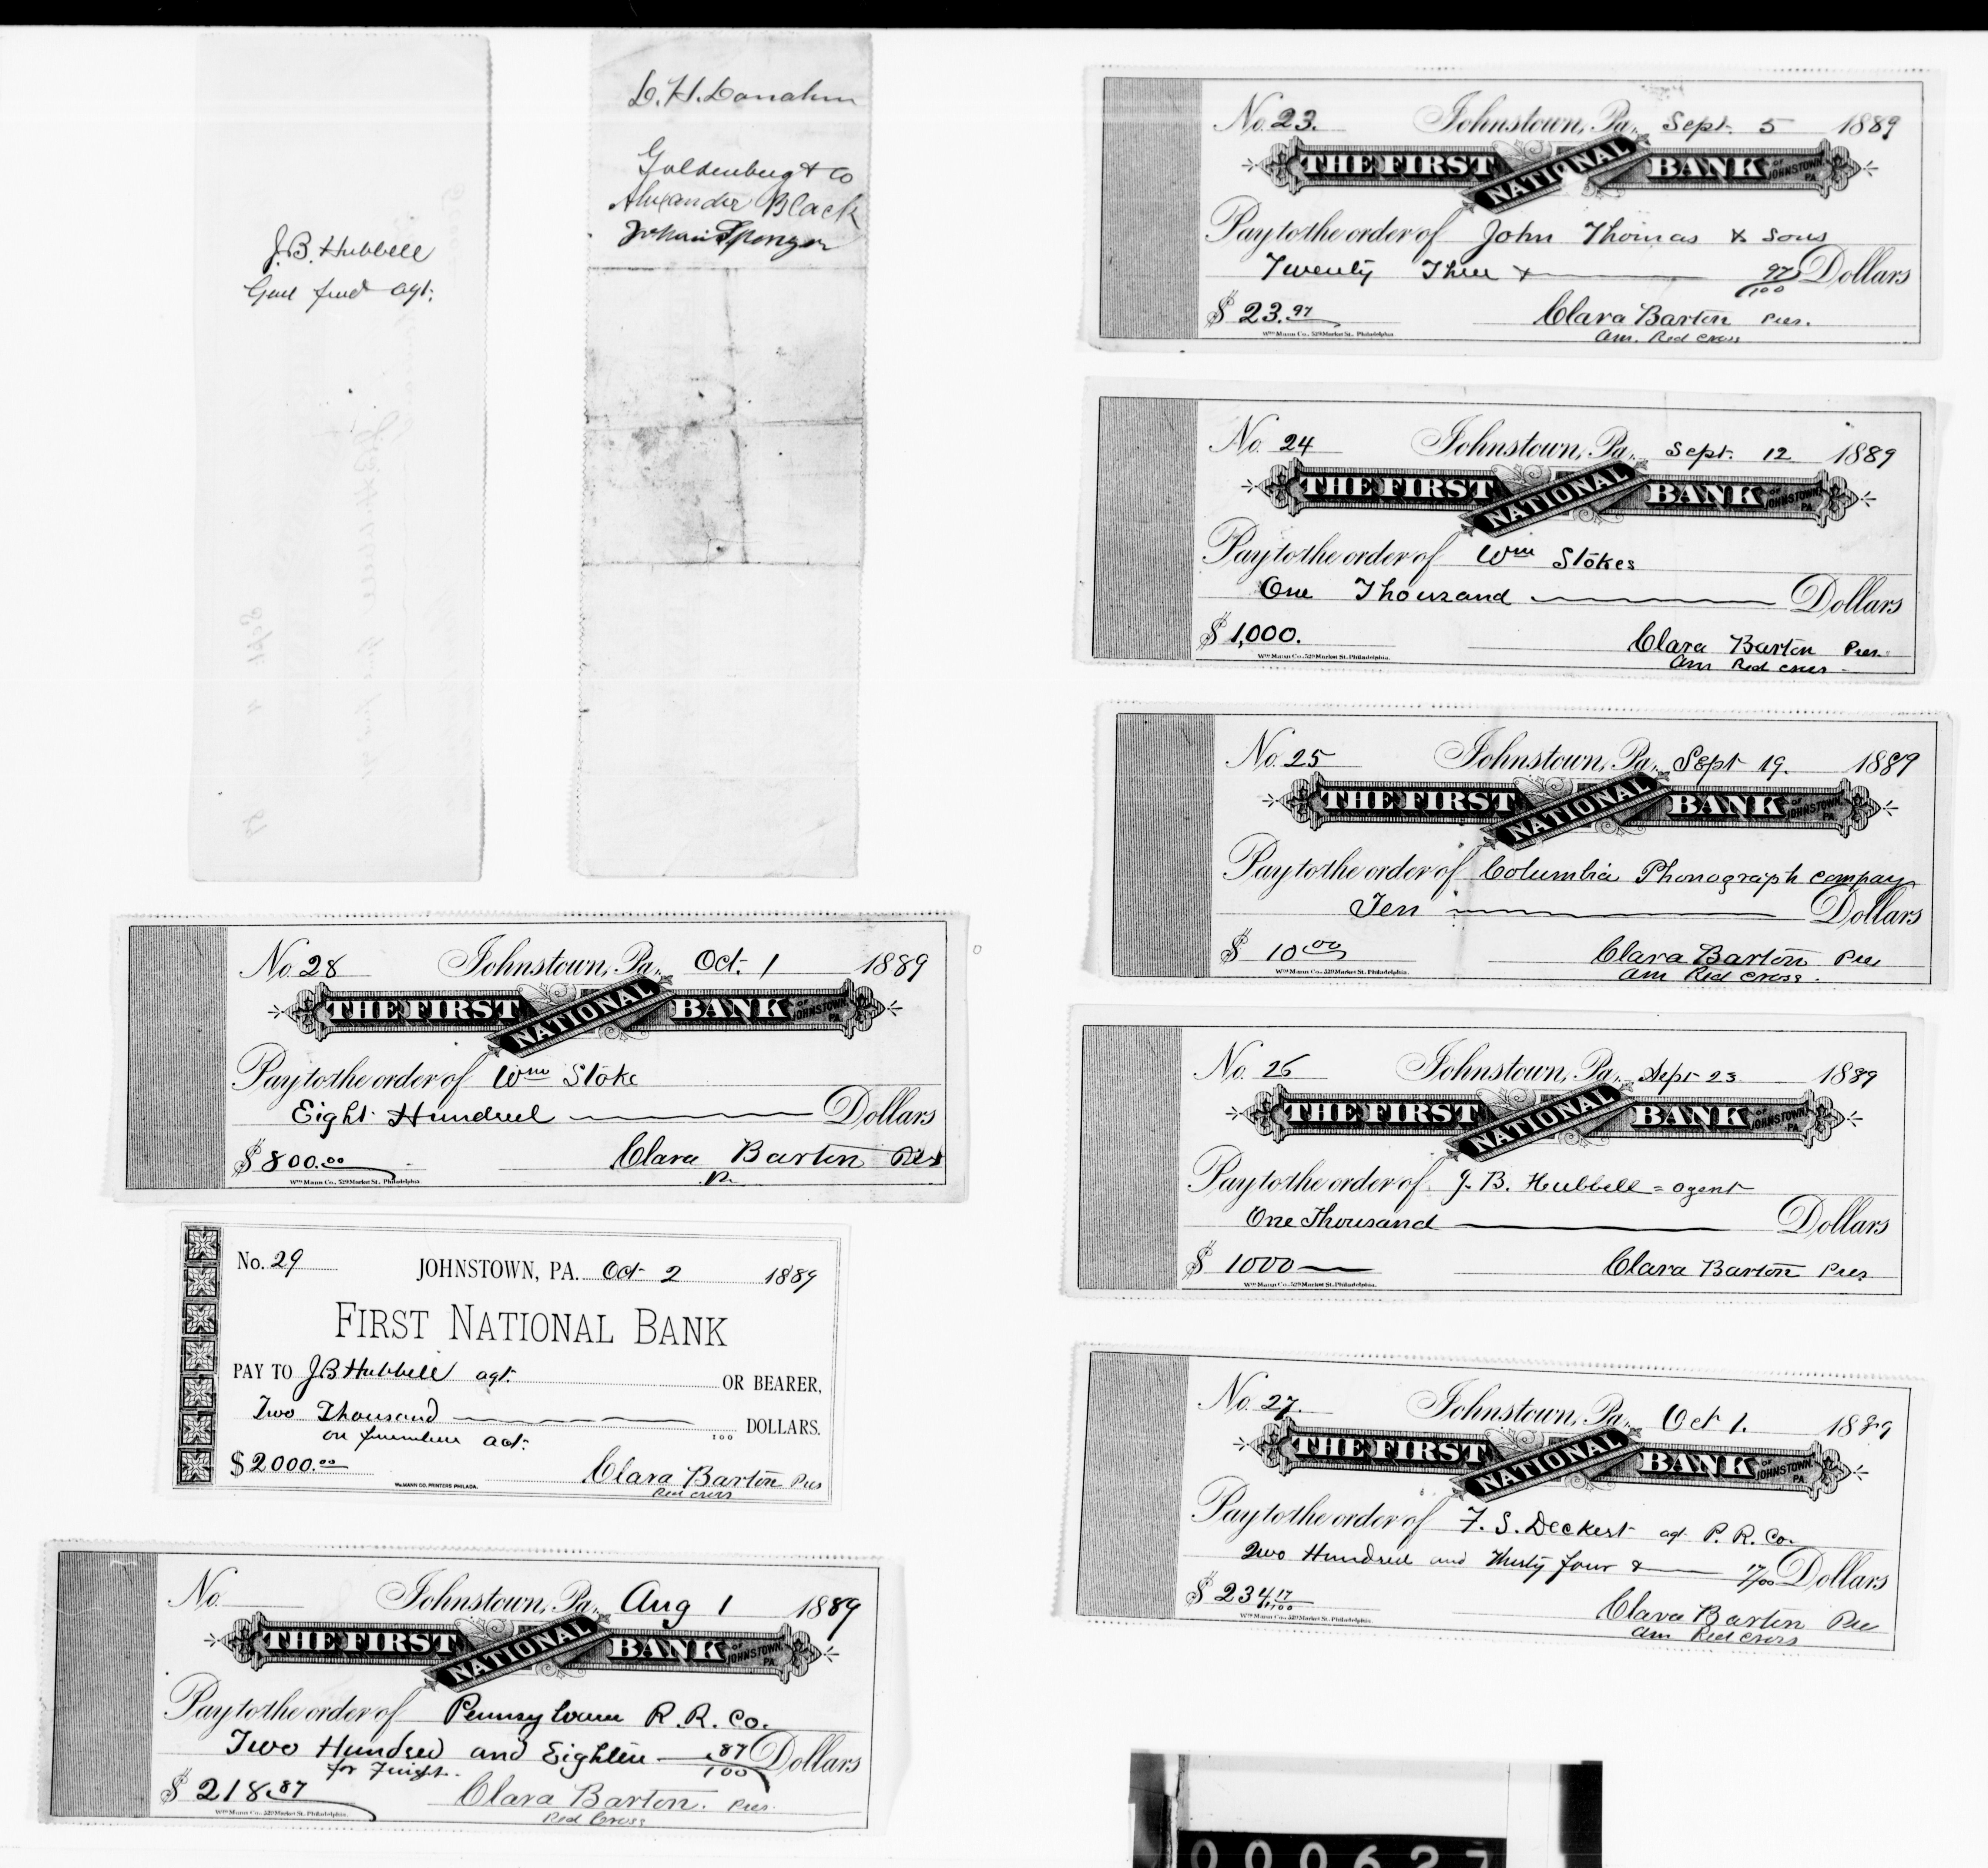 J. B. Hubbell
agt.
Goldenberg & Co
Alexander Black
No. 28 Johnstown, Pa. Oct. 1 1889
THE FIRST NATIONAL BANK OF JOHNSTOWN, PA
Pay to the order of Wm Stoke
Eight Hundred Dollars
$ 800.00 Clara Barton Pres
Wm Mann Co., 529 Market St., Philadelphia.
No. 29 JOHNSTOWN, PA. Oct 2 1889
FIRST NATIONAL BANK
PAY TO J B Hubbell agt. OR BEARER,
Two Thousand DOLLARS.
on act. 100
$ 2000.00 Clara Barton Pres
Wm. MANN CO. PRINTERS PHILADA. Red Cross
No. Johnstown, Pa. Aug 1 1889
THE FIRST NATIONAL BANK OF JOHNSTOWN, PA
Pay to the order of Pennsylvania R. R. Co.
Two Hundred and Eighteen .87/100 Dollars
for Freight.
$ 218.87 Clara Barton. Pres.
Wm Mann Co., 529 Market St., Philadelphia. Red Cross
No. 23. Johnstown, Pa. Sept. 5 1889
THE FIRST NATIONAL BANK OF JOHNSTOWN, PA
Pay to the order of John Thomas & Sons
Twenty Three & 97/100 Dollars
$ 23.97 Clara Barton Pres.
Wm Mann Co., 529 Market St., Philadelphia. Am. Red Cross
No. 24 Johnstown, Pa. Sept. 12 1889
THE FIRST NATIONAL BANK OF JOHNSTOWN, PA
Pay to the order of Wm Stokes
One Thousand Dollars
$ 1,000. Clara Barton Pres.
Wm Mann Co., 529 Market St., Philadelphia. Am Red Cross
No. 25 Johnstown, Pa. Sept 19. 1889
THE FIRST NATIONAL BANK OF JOHNSTOWN, PA
Pay to the order of Columbia Phonograph Company
Ten Dollars
$ 10.00 Clara Barton Pres
Wm Mann Co., 529 Market St., Philadelphia. Am Red Cross.
No. 26 Johnstown, Pa. Sept 23 1889
THE FIRST NATIONAL BANK OF JOHNSTOWN, PA
Pay to the order of J. B. Hubbell = agent
One Thousand Dollars
$ 1000 Clara Barton Pres
Wm Mann Co., 529 Market St., Philadelphia.
No. 27. Johnstown, Pa. Oct 1. 1889
THE FIRST NATIONAL BANK OF JOHNSTOWN, PA
Pay to the order of F. S. Deckert agt P. R. Co.
Two Hundred and Thirty four & 17/100 Dollars
$ 234.17/100 Clara Barton Pres
Wm Mann Co., 529 Market St., Philadelphia. Am Red Cross
000627